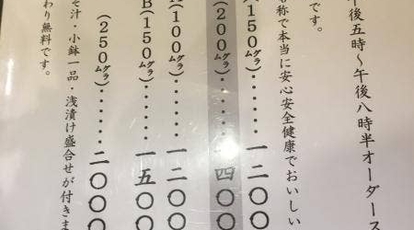 午後五時～午後八時半オーダース
です。
名称で本当に安心安全健康でおいしい
(150㌘)……一二〇〇
(200㌘)……一四〇〇
(100㌘)……一二〇〇
B(150㌘)……一五〇〇
(250㌘)……二〇〇〇
そ汁・小鉢一品・浅漬け盛合せが付きま
わり無料です。